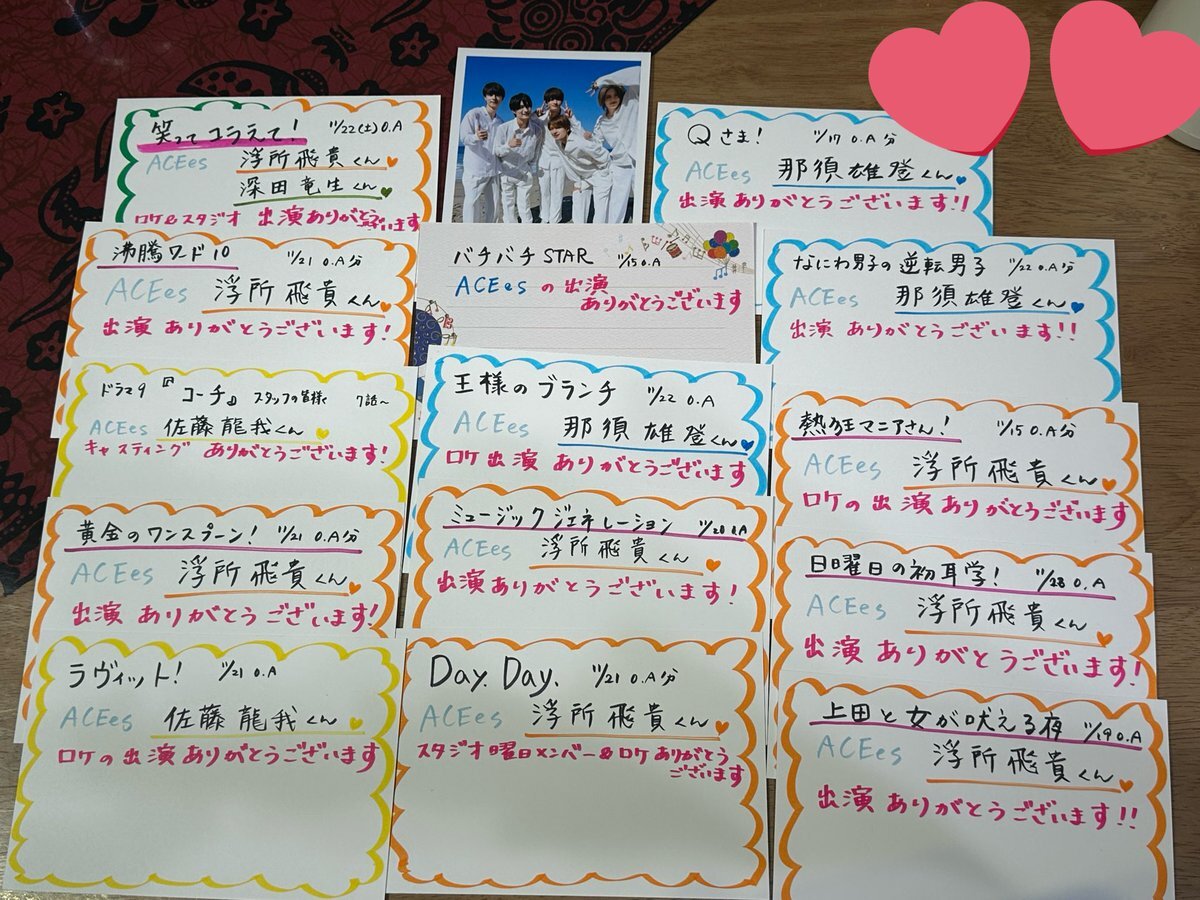 笑ってコラえて! 11/22(土)O.A
ACEes 浮所飛貴くん
深田竜生くん
ロケ&スタジオ 出演ありがとうございます
Qさま! 11/17 O.A分
ACEes 那須雄登くん
出演ありがとうございます!!
沸騰ワード10 11/21 O.A分
ACEes 浮所飛貴くん
出演ありがとうございます!
バチバチSTAR 11/15 O.A
ACEesの出演
ありがとうございます
なにわ男子の逆転男子 11/22 O.A分
ACEes 那須雄登くん
出演ありがとうございます!!
ドラマ9『コーチ』スタッフの皆様 7話~
ACEes 佐藤龍我くん
キャスティング ありがとうございます!
王様のブランチ 11/22 O.A
ACEes 那須雄登くん
ロケ出演ありがとうございます
熱狂マニアさん! 11/15 O.A分
ACEes 浮所飛貴くん
ロケの出演ありがとうございます
黄金のワンスプーン! 11/21 O.A分
ACEes 浮所飛貴くん
出演ありがとうございます!
ミュージックジェネレーション 11/20 O.A
ACEes 浮所飛貴くん
出演ありがとうございます!
日曜日の初耳学! 11/23 O.A
ACEes 浮所飛貴くん
出演ありがとうございます!
ラヴィット! 11/21 O.A
ACEes 佐藤龍我くん
ロケの出演ありがとうございます
Day.Day. 11/21 O.A分
ACEes 浮所飛貴くん
スタジオ曜日メンバー&ロケありがとう
ございます
上田と女が吠える夜 11/19 O.A
ACEes 浮所飛貴くん
出演ありがとうございます!!